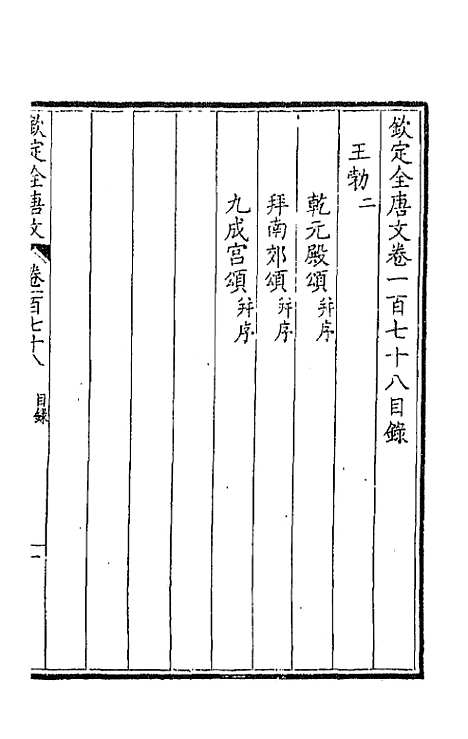 欽定全唐文卷一百七十八目錄
王勃二
乾元殿頌并序
拜南郊頌并序
九成宮頌并序
欽定全唐文
卷一百七十八
目錄
一